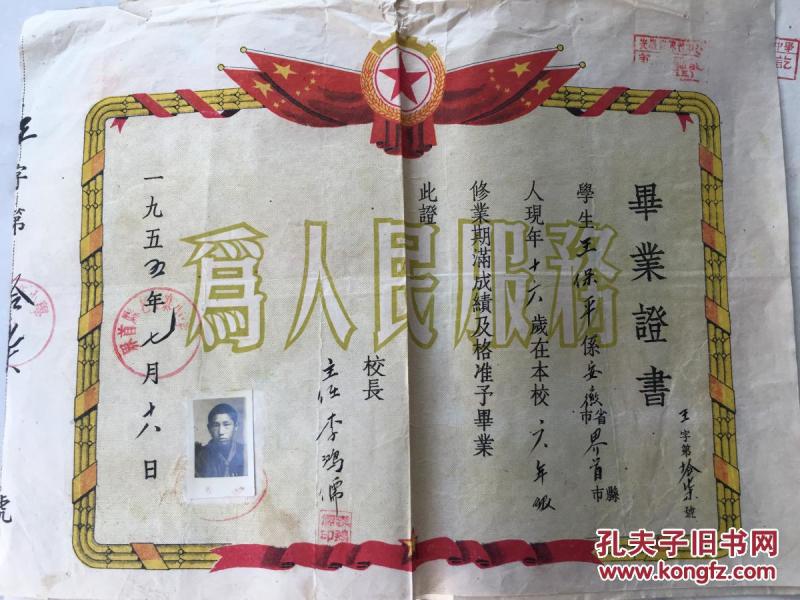 畢業證書
王字第拾柒號
學生王保平係安徽省市界首縣市
人現年十六歲在本校六年級
修業期滿成績及格准予畢業
此證
校長
主任李鴻儒
一九五五年七月十八日
為人民服務
王字第拾柒號
孔夫子旧书网
www.kongfz.com